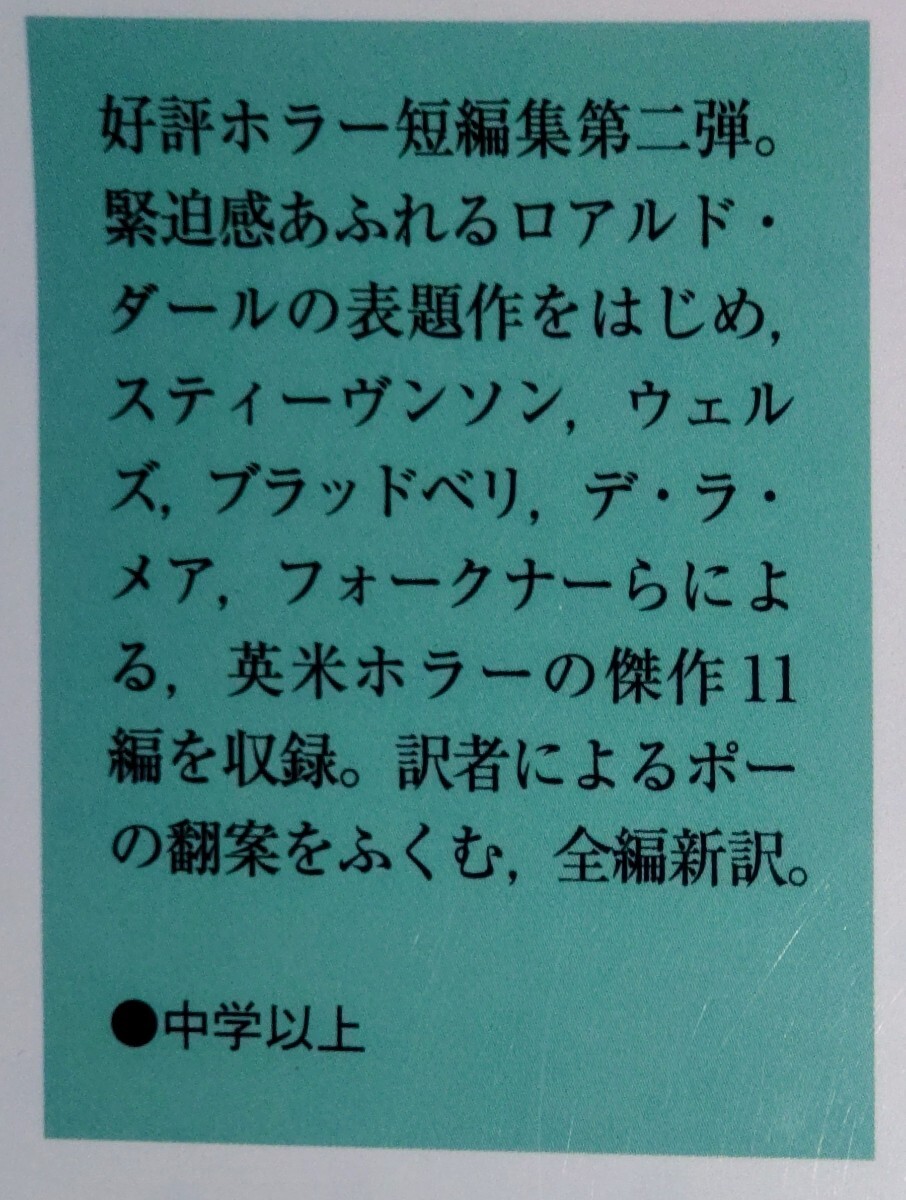 好評ホラー短編集第二弾。
緊迫感あふれるロアルド・
ダールの表題作をはじめ,
スティーヴンソン, ウェル
ズ, ブラッドベリ, デ・ラ・
メア, フォークナーらによ
る, 英米ホラーの傑作11
編を収録。訳者によるポー
の翻案をふくむ, 全編新訳。
●中学以上